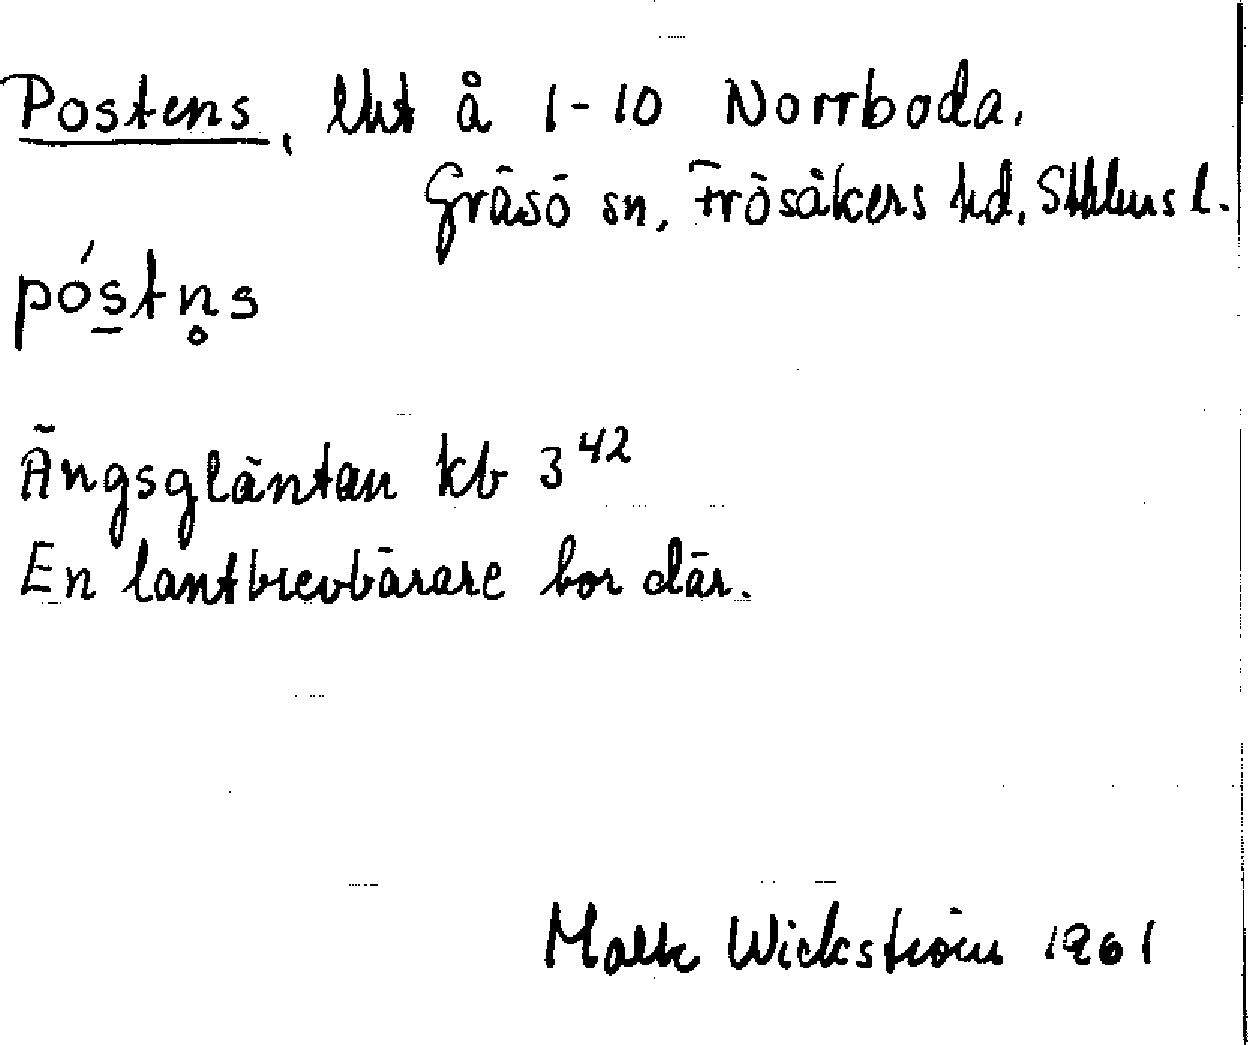 Postens, lht å 1-10 Norrboda.
Gräsö sn, Frösåkers hd, Sthlms l.
pós̲tn̥s
Ängsgläntan kb 3⁴²
En lantbrevbärare bor där.
Malte Wickström 1961